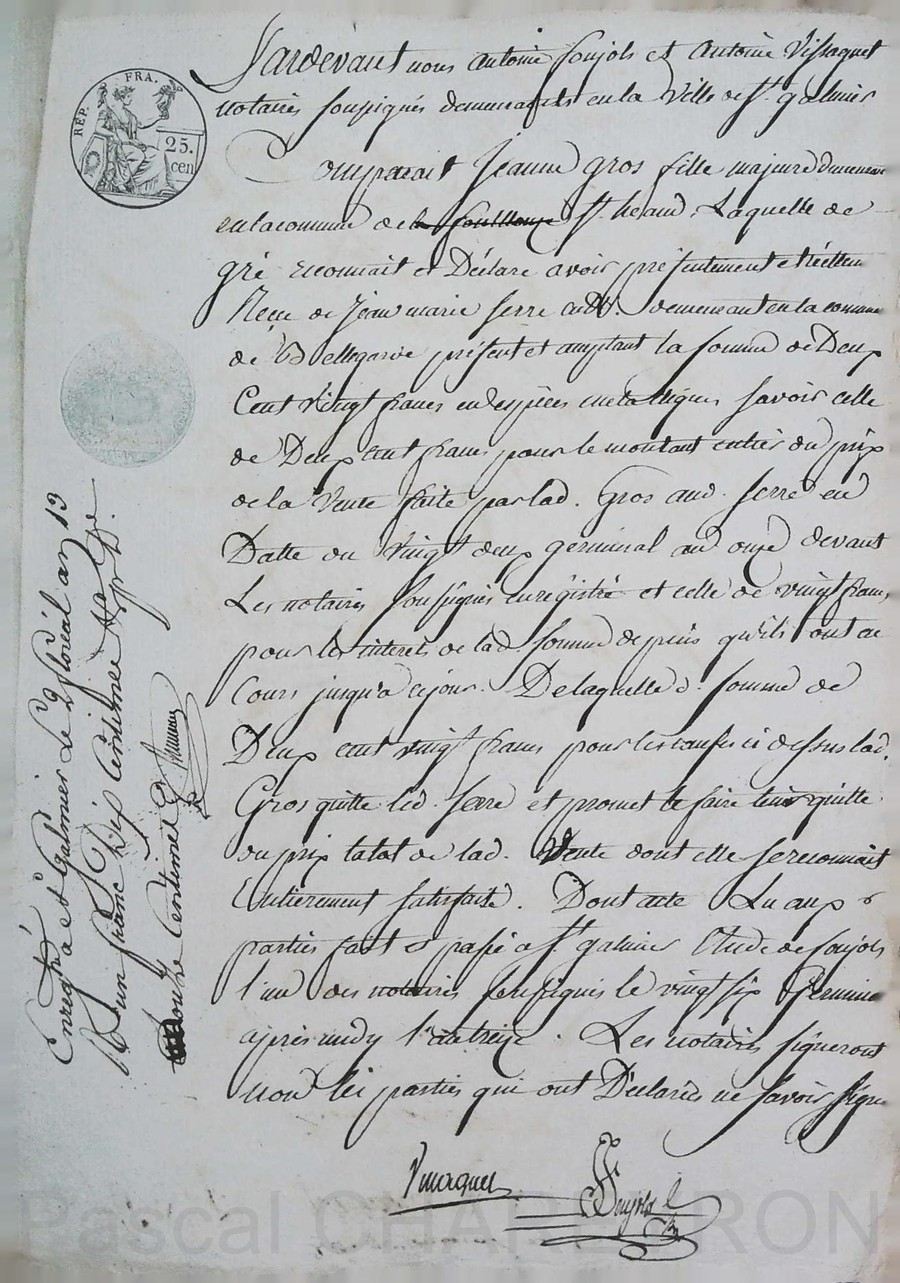 REP. FRA.
25.
cen
Pardevant nous Antoine Soujols et Antoine Vissaguet
notaires soussignés demeurants en la Ville de St. galmier
Comparait Jeanne gros fille majeure demeurant
en la commune de la fouillouze St. heand. Laquelle de
gré reconnait et Déclare avoir présentement et réellem
Reçu de Jean marie Serre demeurant en la commune
de Bellegarde présent et acceptant la somme de Deux
Cent vingt francs en espèces metalliques savoir celle
de Deux cent francs pour le montant entier du prix
de la Vente faite par lad. Gros aud. Serre en
Datte du vingt deux germinal an onze devant
Les notaires soussignés enregistré et celle de vingt francs
pour les interets de lad somme depuis qu'ils ont eu
Cours jusqu'à ce jour. De laquelle d. somme de
Deux cent vingt francs pour les causes ci dessus lad.
Gros quitte led. Serre et promet le faire tenir quitte
du prix total de lad. Vente dont elle se reconnait
Entierement satisfaite. Dont acte Lu aux
parties fait et passé a St. galmier Etude de Soujols
l'un des notaires soussignés le vingt six Germinal
après midy l'an treize. Les notaires signeront
non les parties qui ont Déclarés ne savoir signer
Vissaguet Soujols
Enregtré a St Galmier Le 9 floréal an 13
R un franc Dix Centimes
Douze Centimes
Pascal CHAPERON